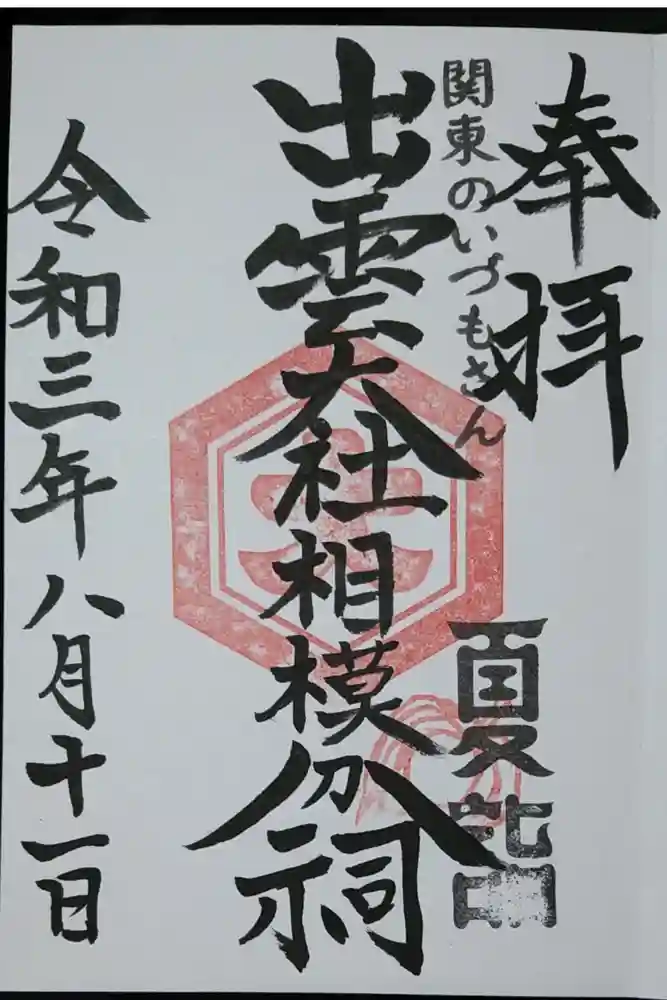 奉拝
関東のいづもさん
出雲大社相模分祠
令和三年八月十一日